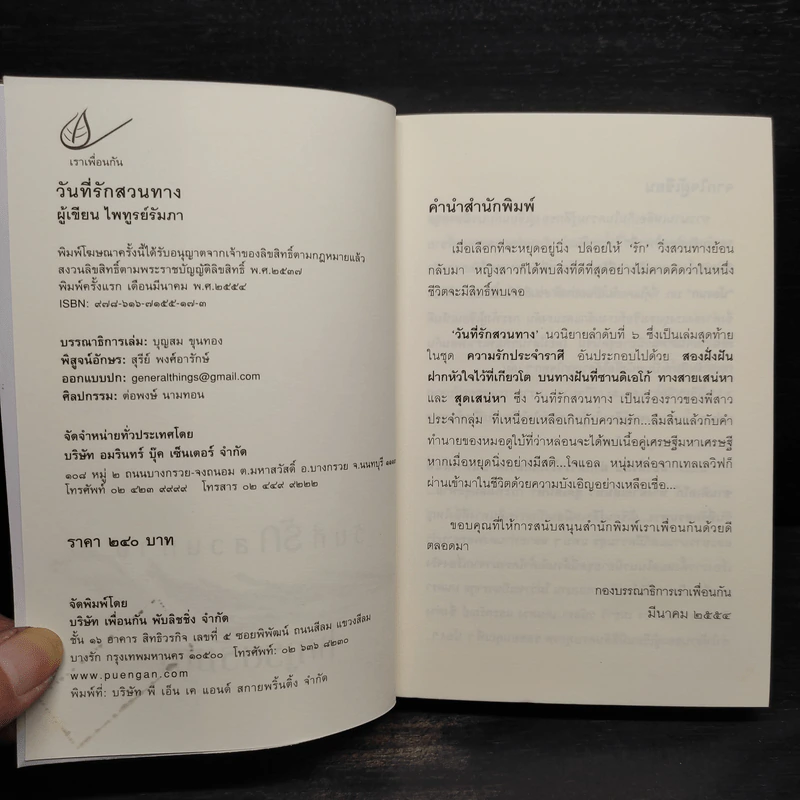 เราเพื่อนกัน
วันที่รักสวนทาง
ผู้เขียน ไพฑูรย์รัมภา
พิมพ์โฆษณาครั้งนี้ได้รับอนุญาตจากเจ้าของลิขสิทธิ์ตามกฎหมายแล้ว
สงวนลิขสิทธิ์ตามพระราชบัญญัติลิขสิทธิ์ พ.ศ.๒๕๓๗
พิมพ์ครั้งแรก เดือนมีนาคม พ.ศ.๒๕๕๔
ISBN: ๙๗๘-๖๑๖-๗๑๕๕-๑๗-๓
บรรณาธิการเล่ม: บุญสม ขุนทอง
พิสูจน์อักษร: สุรีย์ พงศ์อารักษ์
ออกแบบปก: generalthings@gmail.com
ศิลปกรรม: ต่อพงษ์ นามทอน
จัดจำหน่ายทั่วประเทศโดย
บริษัท อมรินทร์ บุ๊ค เซ็นเตอร์ จำกัด
๑๐๘ หมู่ ๒ ถนนบางกรวย-จงถนอม ต.มหาสวัสดิ์ อ.บางกรวย จ.นนทบุรี ๑๑๑๓๐
โทรศัพท์ ๐๒ ๔๒๓ ๙๙๙๙ โทรสาร ๐๒ ๔๔๙ ๙๒๒๒
ราคา ๒๔๐ บาท
จัดพิมพ์โดย
บริษัท เพื่อนกัน พับลิชชิ่ง จำกัด
ชั้น ๑๖ อาคาร สิทธิวรกิจ เลขที่ ๕ ซอยพิพัฒน์ ถนนสีลม แขวงสีลม
บางรัก กรุงเทพมหานคร ๑๐๕๐๐ โทรศัพท์: ๐๒ ๖๓๖ ๘๒๓๐
www.puengan.com
พิมพ์ที่: บริษัท พี เอ็น เค แอนด์ สกายพริ้นติ้ง จำกัด
คำนำสำนักพิมพ์
เมื่อเลือกที่จะหยุดอยู่นิ่ง ปล่อยให้ 'รัก' วิ่งสวนทางย้อน
กลับมา หญิงสาวก็ได้พบสิ่งที่ดีที่สุดอย่างไม่คาดคิดว่าในหนึ่ง
ชีวิตจะมีสิทธิ์พบเจอ
'วันที่รักสวนทาง' นวนิยายลำดับที่ ๖ ซึ่งเป็นเล่มสุดท้าย
ในชุด ความรักประจำราศี อันประกอบไปด้วย สองฝั่งฝัน
ฝากหัวใจไว้ที่เกียวโต บนทางฝันที่ซานดิเอโก้ ทางสายเสน่หา
และ สุดเสน่หา ซึ่ง วันที่รักสวนทาง เป็นเรื่องราวของพี่สาว
ประจำกลุ่ม ที่เหนื่อยเหลือเกินกับความรัก...ลืมสิ้นแล้วกับคำ
ทำนายของหมอดูใบ้ที่ว่าหล่อนจะได้พบเนื้อคู่เศรษฐีมหาเศรษฐี
หากเมื่อหยุดนิ่งอย่างมีสติ...โจแอล หนุ่มหล่อจากเทลเลวิฟก็
ผ่านเข้ามาในชีวิตด้วยความบังเอิญอย่างเหลือเชื่อ...
ขอบคุณที่ให้การสนับสนุนสำนักพิมพ์เราเพื่อนกันด้วยดี
ตลอดมา
กองบรรณาธิการเราเพื่อนกัน
มีนาคม ๒๕๕๔